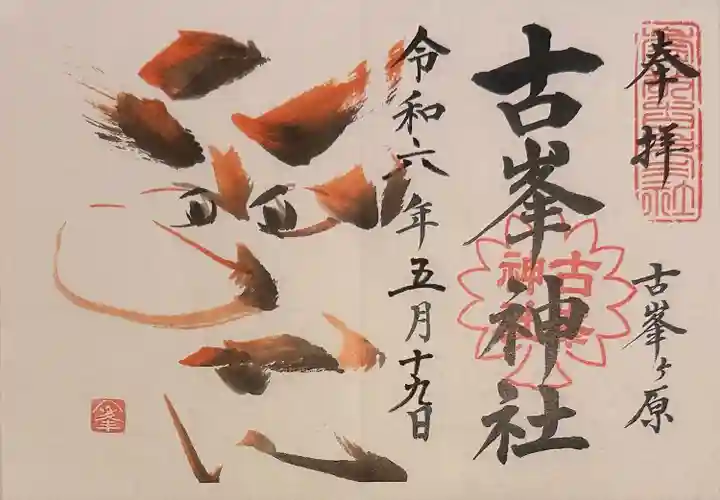 奉拝
古峯ヶ原
古峯神社
古峯神社
令和六年五月十九日